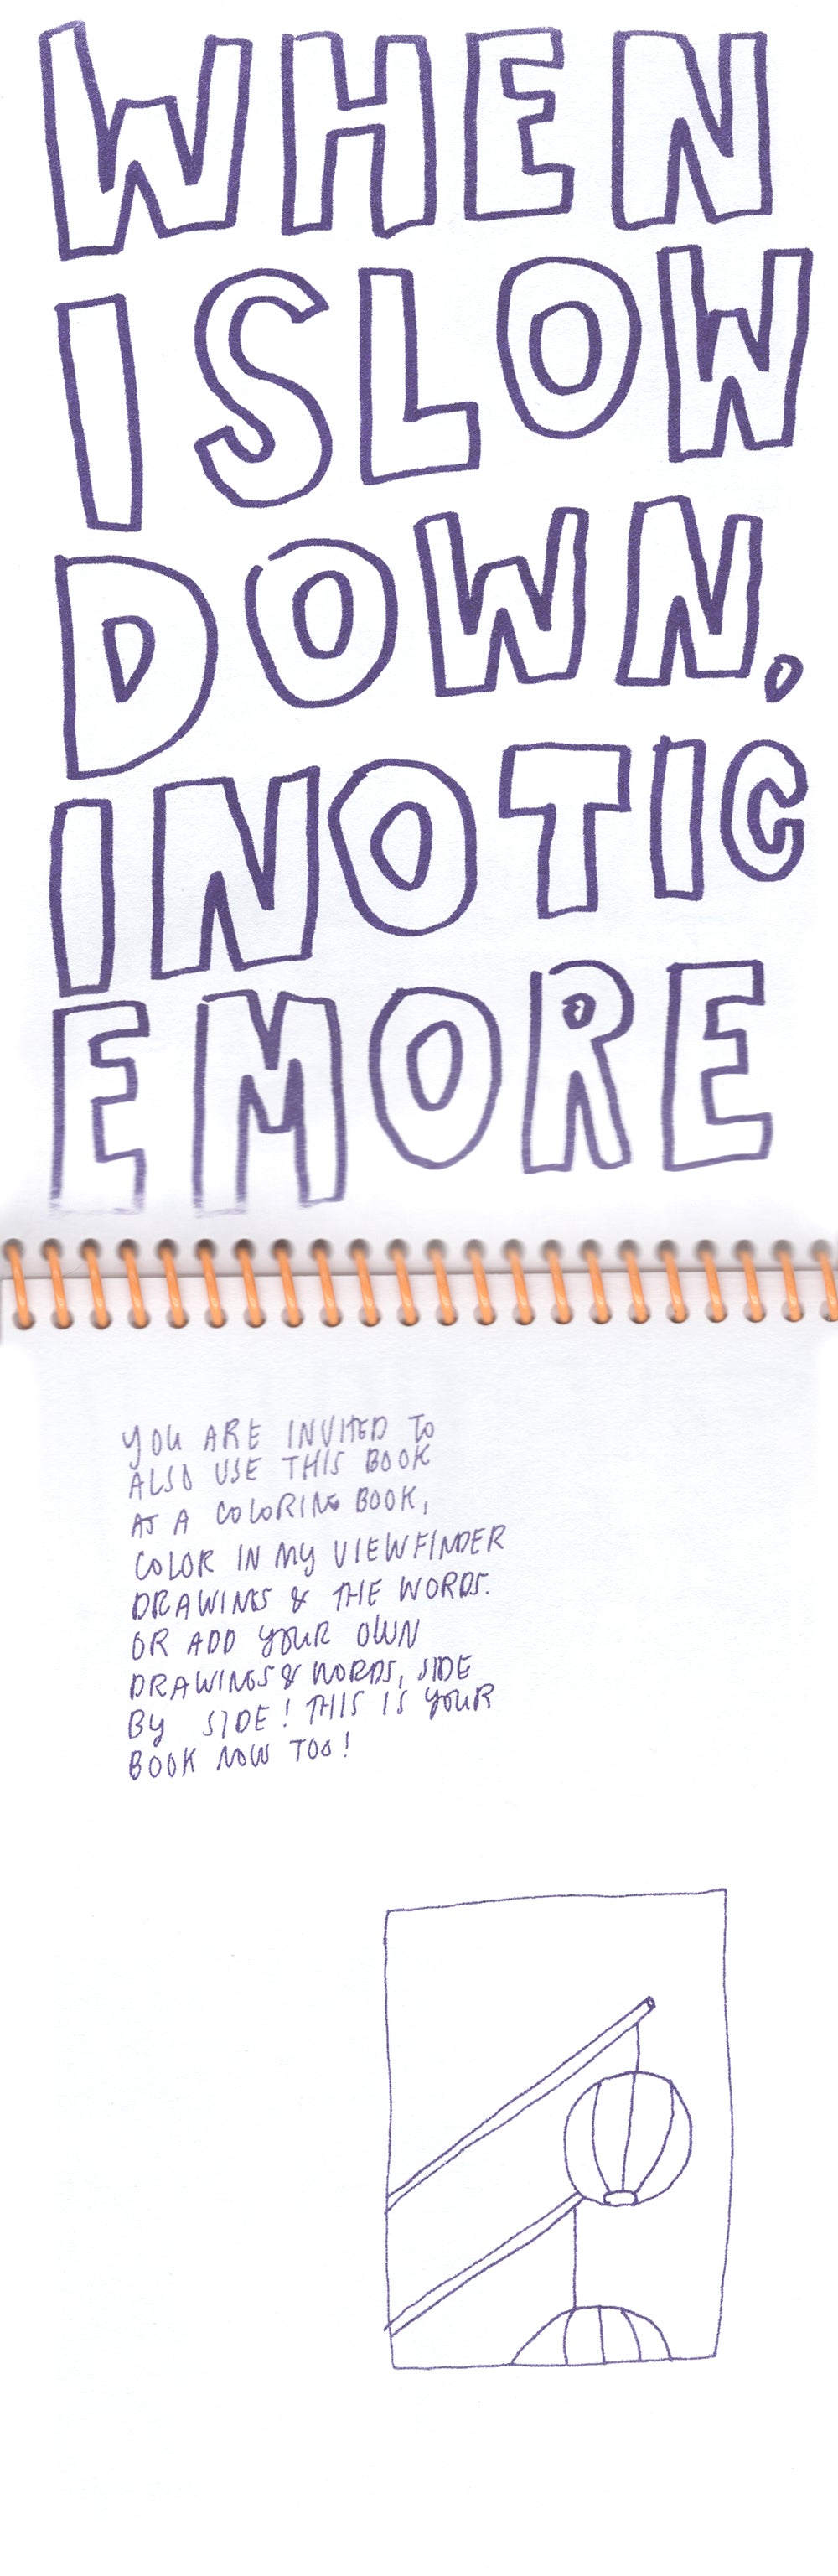 WHEN
I SLOW
DOWN,
I NOTIC
E MORE
YOU ARE INVITED TO
ALSO USE THIS BOOK
AS A COLORING BOOK,
COLOR IN MY VIEWFINDER
DRAWINGS & THE WORDS.
OR ADD YOUR OWN
DRAWINGS & WORDS, SIDE
BY SIDE! THIS IS YOUR
BOOK NOW TOO!